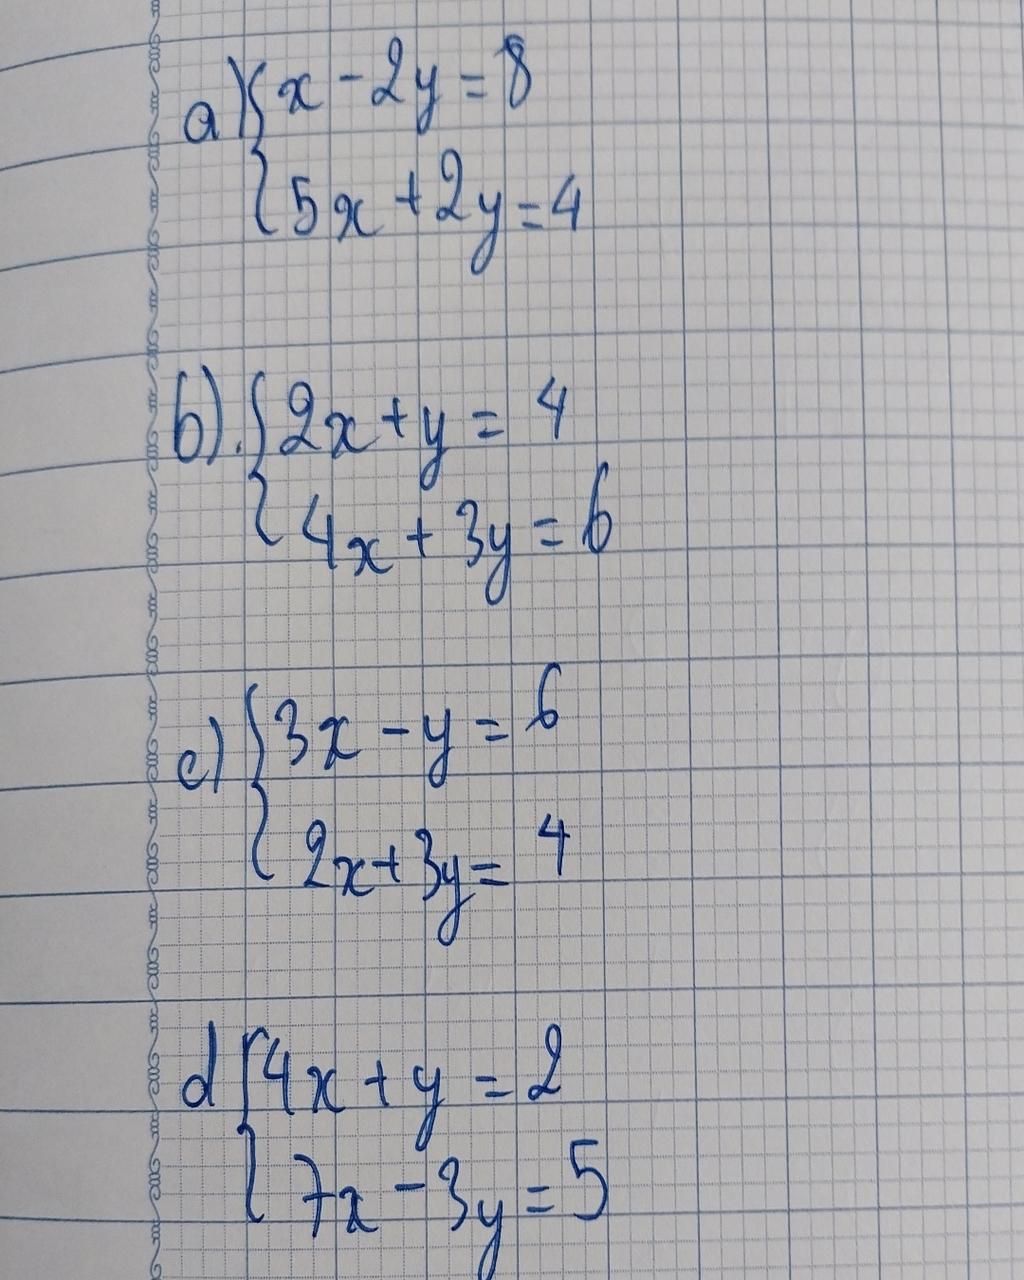 a) { x - 2y = 8
{ 5x + 2y = 4
b). { 2x + y = 4
{ 4x + 3y = 6
c) { 3x - y = 6
{ 2x + 3y = 4
d { 4x + y = 2
{ 7x - 3y = 5